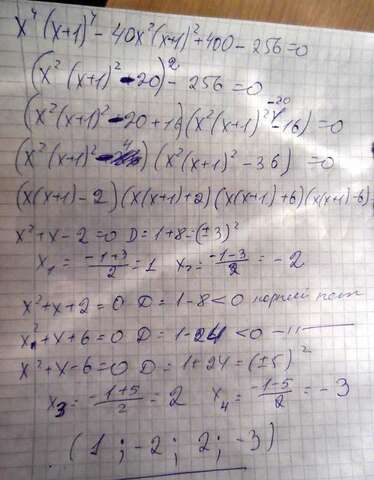 x⁴(x+1)⁴ - 40x²(x+1)² + 400 - 256 = 0
(x²(x+1)² - 20)² - 256 = 0
(x²(x+1)² - 20 + 16)(x²(x+1)² - 20 - 16) = 0
(x²(x+1)² - 4)(x²(x+1)² - 36) = 0
(x(x+1) - 2)(x(x+1) + 2)(x(x+1) + 6)(x(x+1) - 6)
x² + x - 2 = 0 D = 1 + 8 = (±3)²
x₁ = (-1+3)/2 = 1 x₂ = (-1-3)/2 = -2
x² + x + 2 = 0 D = 1 - 8 < 0 корней нет
x² + x + 6 = 0 D = 1 - 24 < 0 -//-
x² + x - 6 = 0 D = 1 + 24 = (±5)²
x₃ = (-1+5)/2 = 2 x₄ = (-1-5)/2 = -3
(1; -2; 2; -3)